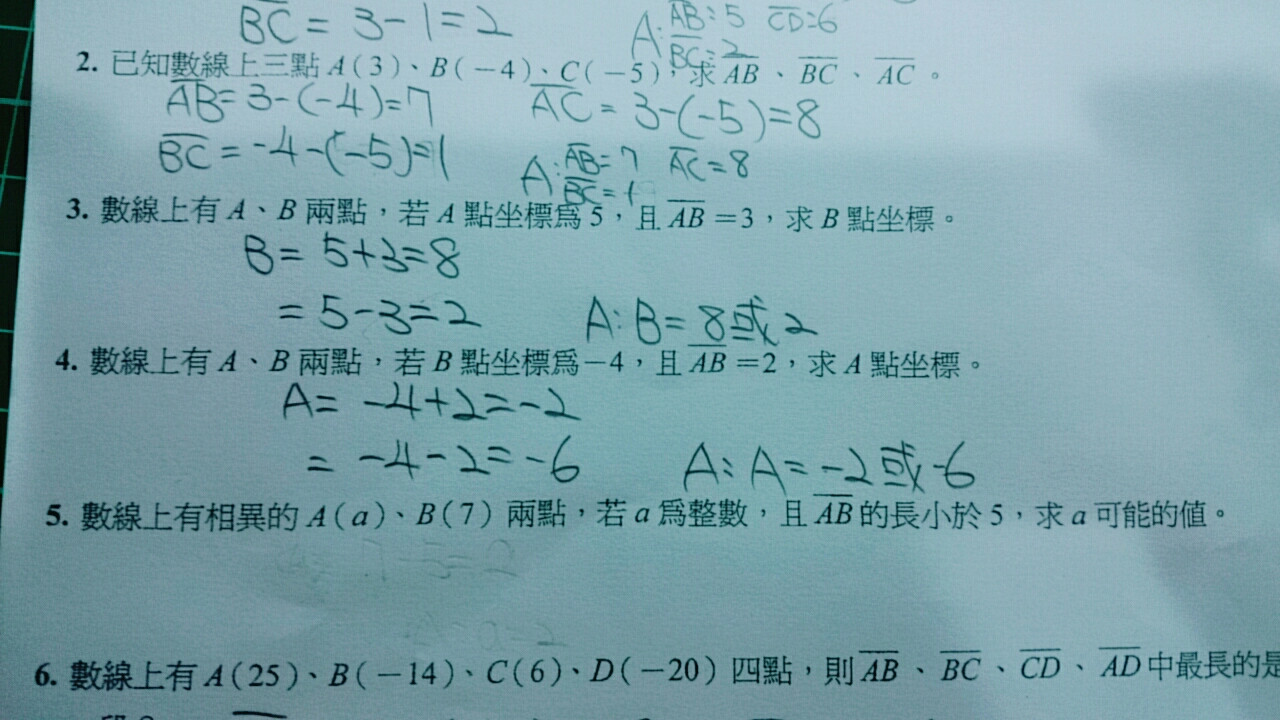 BC = 3-1=2
A: AB=5 CD=6
BC=2
2. 已知數線上三點 A(3)、B(-4)、C(-5),求 AB、BC、AC。
AB=3-(-4)=7 AC=3-(-5)=8
BC=-4-(-5)=1 A: AB=7 AC=8
BC=1
3. 數線上有 A、B 兩點,若 A 點坐標為 5,且 AB=3,求 B 點坐標。
B= 5+3=8
= 5-3=2 A: B=8或2
4. 數線上有 A、B 兩點,若 B 點坐標為-4,且 AB=2,求 A 點坐標。
A= -4+2=-2
= -4-2=-6 A: A=-2或-6
5. 數線上有相異的 A(a)、B(7) 兩點,若 a 為整數,且 AB 的長小於 5,求 a 可能的值。
7-5=2
6. 數線上有 A(25)、B(-14)、C(6)、D(-20) 四點,則 AB、BC、CD、AD 中最長的是